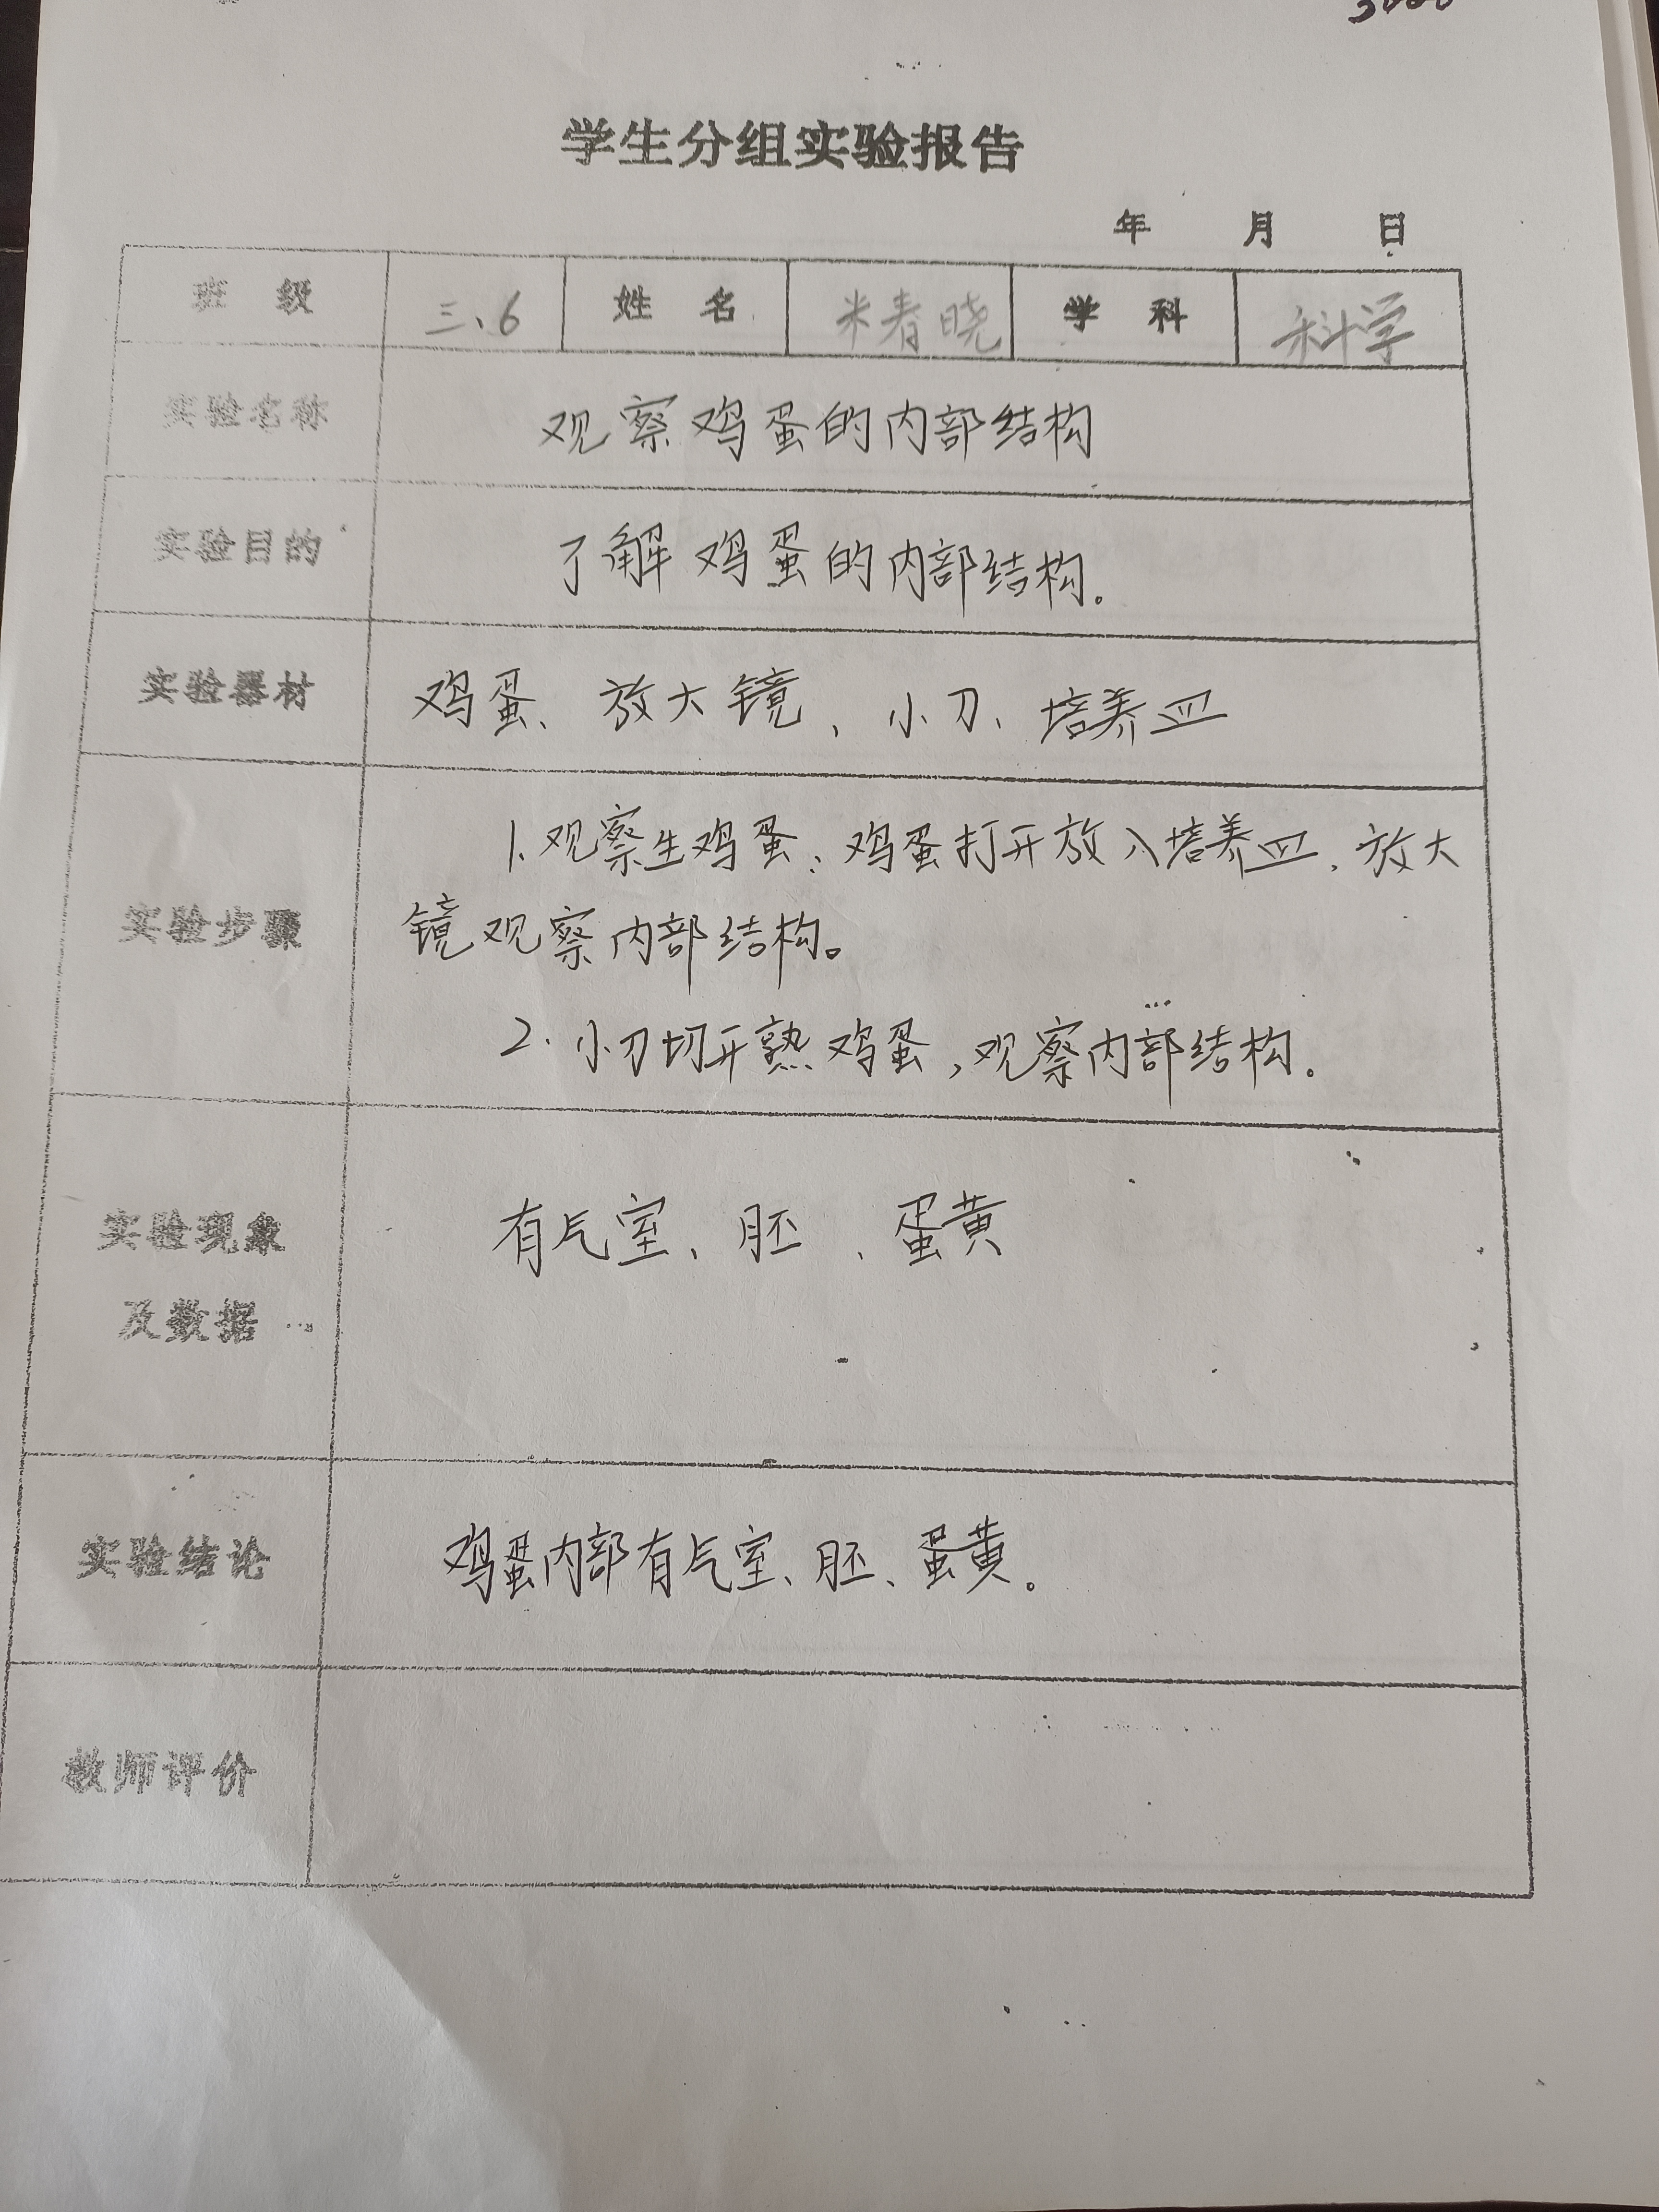 学生分组实验报告
年 月 日
班 级 三、6 姓 名 米春晓 学 科 科学
实验名称 观察鸡蛋的内部结构
实验目的 了解鸡蛋的内部结构。
实验器材 鸡蛋、放大镜、小刀、培养皿
实验步骤
1、观察生鸡蛋:鸡蛋打开放入培养皿,放大
镜观察内部结构。
2.小刀切开熟鸡蛋,观察内部结构。
实验现象
及数据
有气室、胚、蛋黄
实验结论 鸡蛋内部有气室、胚、蛋黄。
教师评价